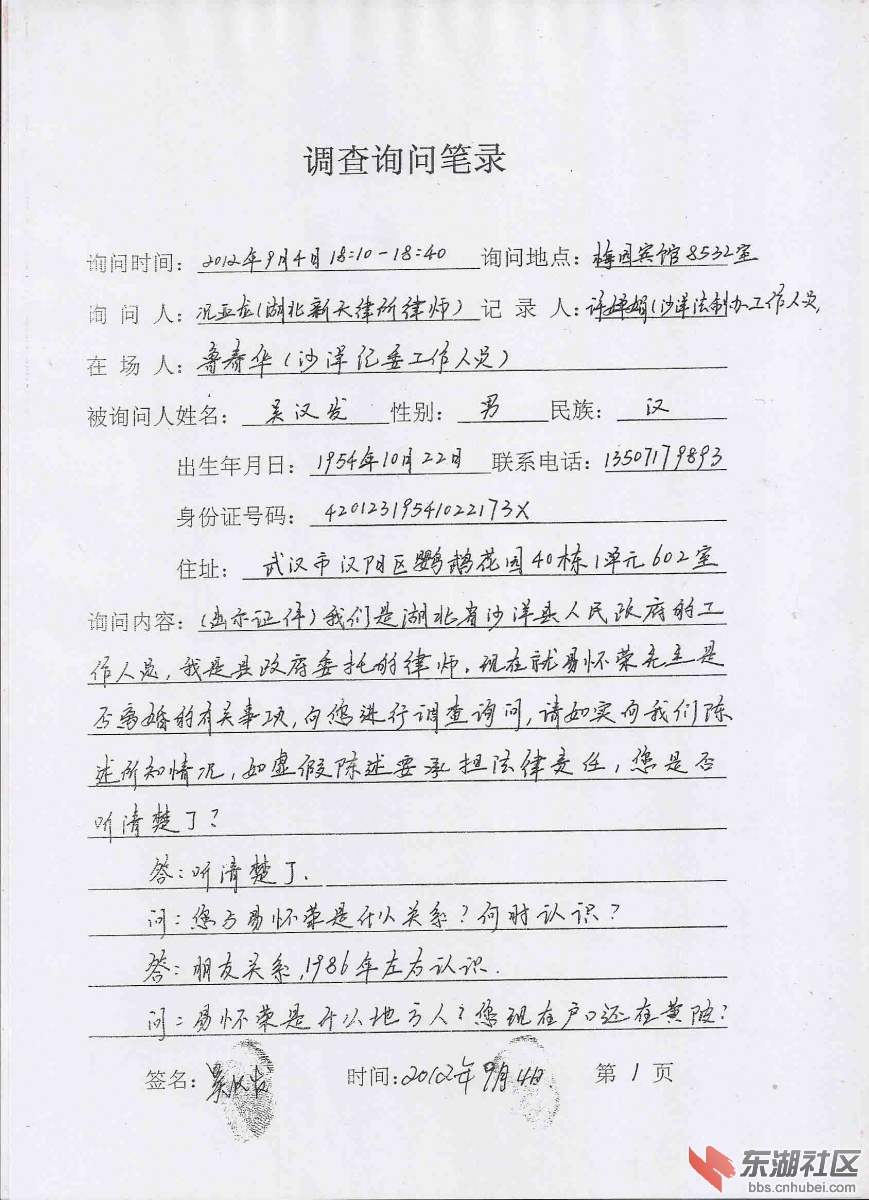 调查询问笔录
询问时间：2012年9月4日18:10-18:40 询问地点：梅园宾馆8532室
询问人：况亚龙（湖北新天律所律师） 记录人：许婵娟（沙洋法制办工作人员
在场人：鲁春华（沙洋纪委工作人员）
被询问人姓名：吴汉发 性别：男 民族：汉
出生年月日：1954年10月22日 联系电话：13507179893
身份证号码：42012319541022173X
住址：武汉市汉阳区鹦鹉花园40栋1单元602室
询问内容：（出示证件）我们是湖北省沙洋县人民政府的工
作人员，我是县政府委托的律师，现在就易怀荣是
否离婚的有关事项，向您进行调查询问，请如实向我们陈
述所知情况，如虚假陈述要承担法律责任，您是否
听清楚了？
答：听清楚了．
问：您与易怀荣是什么关系？何时认识？
答：朋友关系，1986年左右认识．
问：易怀荣是什么地方人？您现在户口还在黄陂？
签名：吴汉发 时间：2012年9月4日 第1页
东湖社区
bbs.cnhubei.com